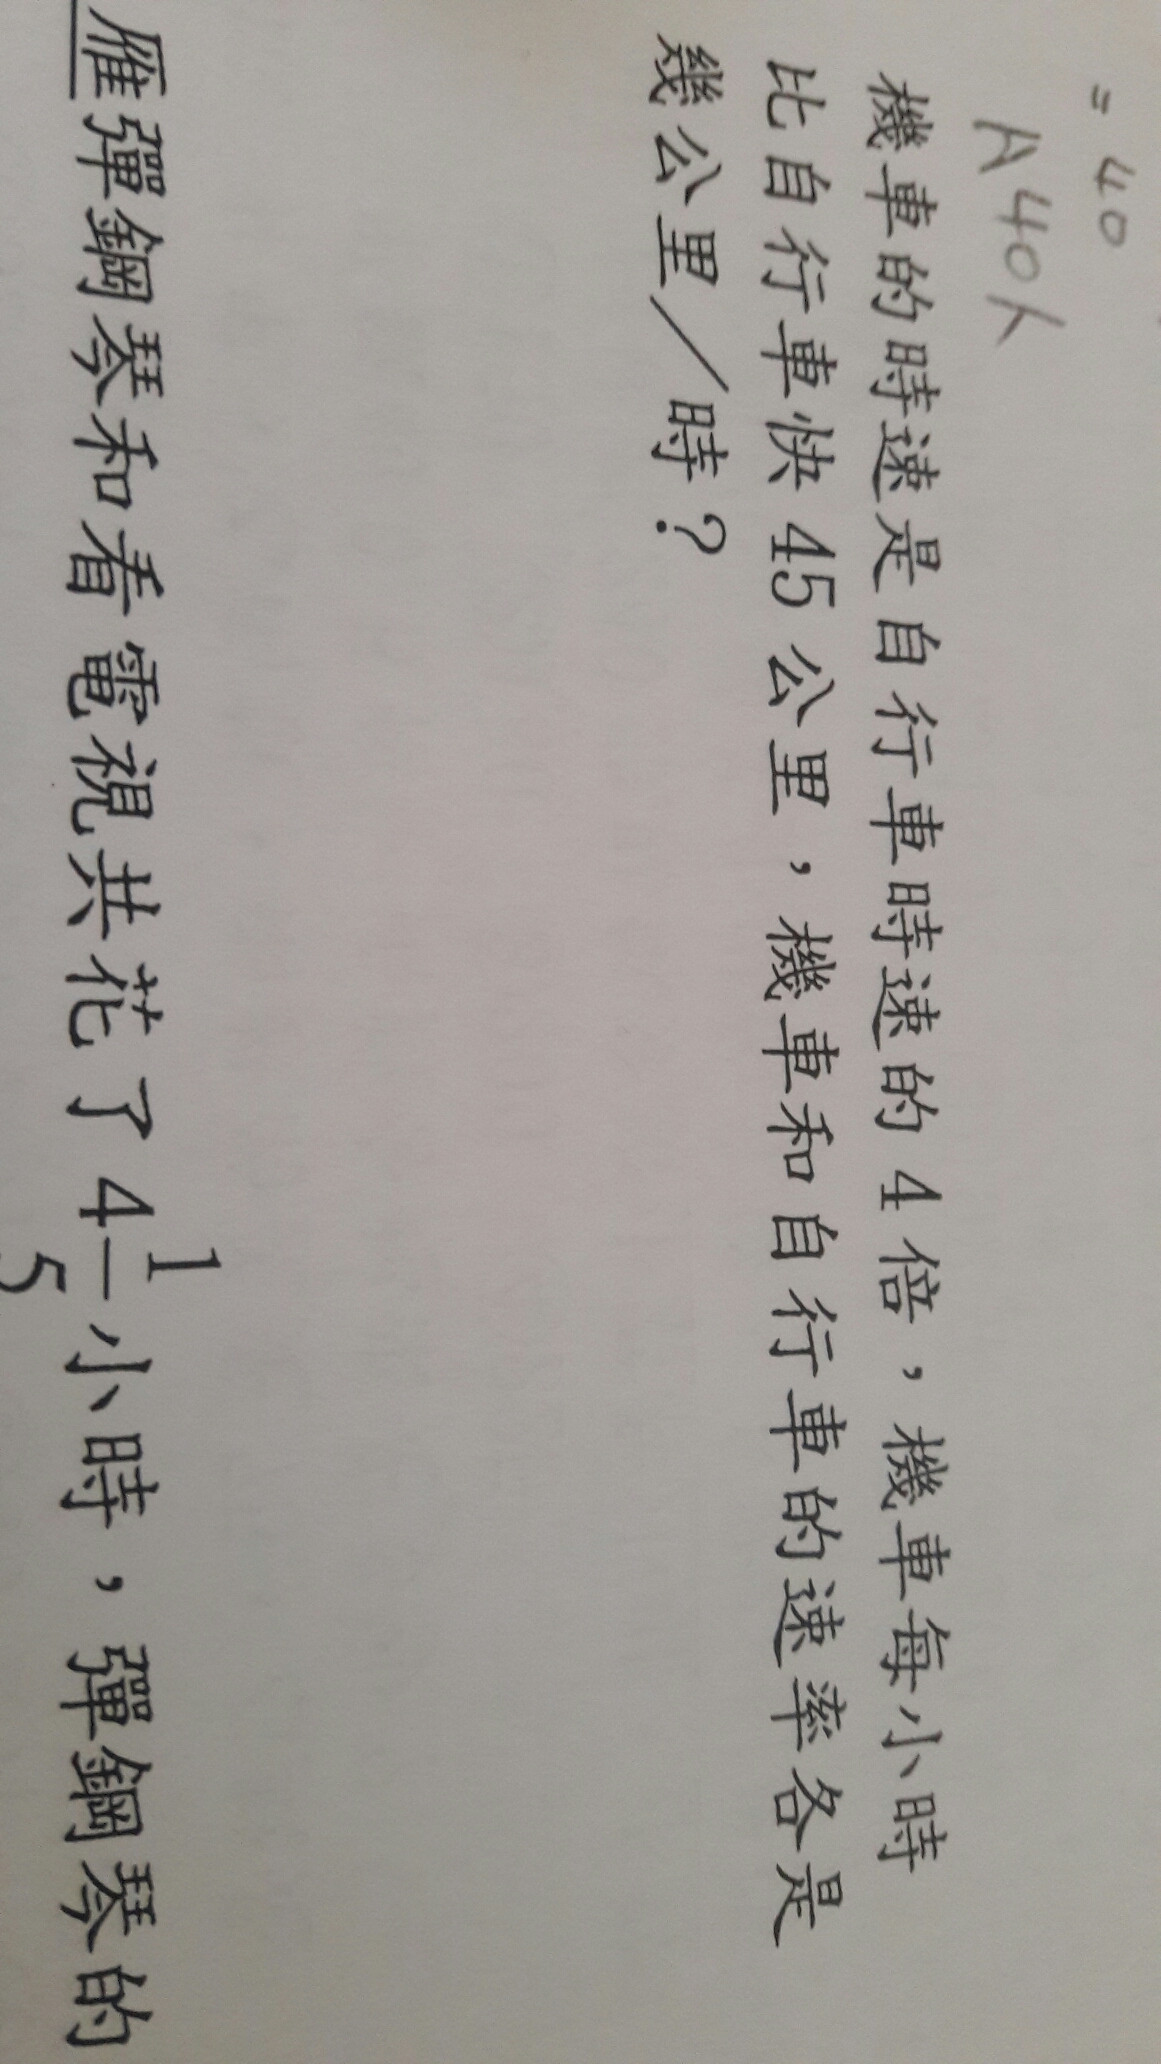 = 40
A 40人
機車的時速是自行車時速的4倍，機車每小時
比自行車快45公里，機車和自行車的速率各是
幾公里／時？
雁彈鋼琴和看電視共花了4 1/5 小時，彈鋼琴的